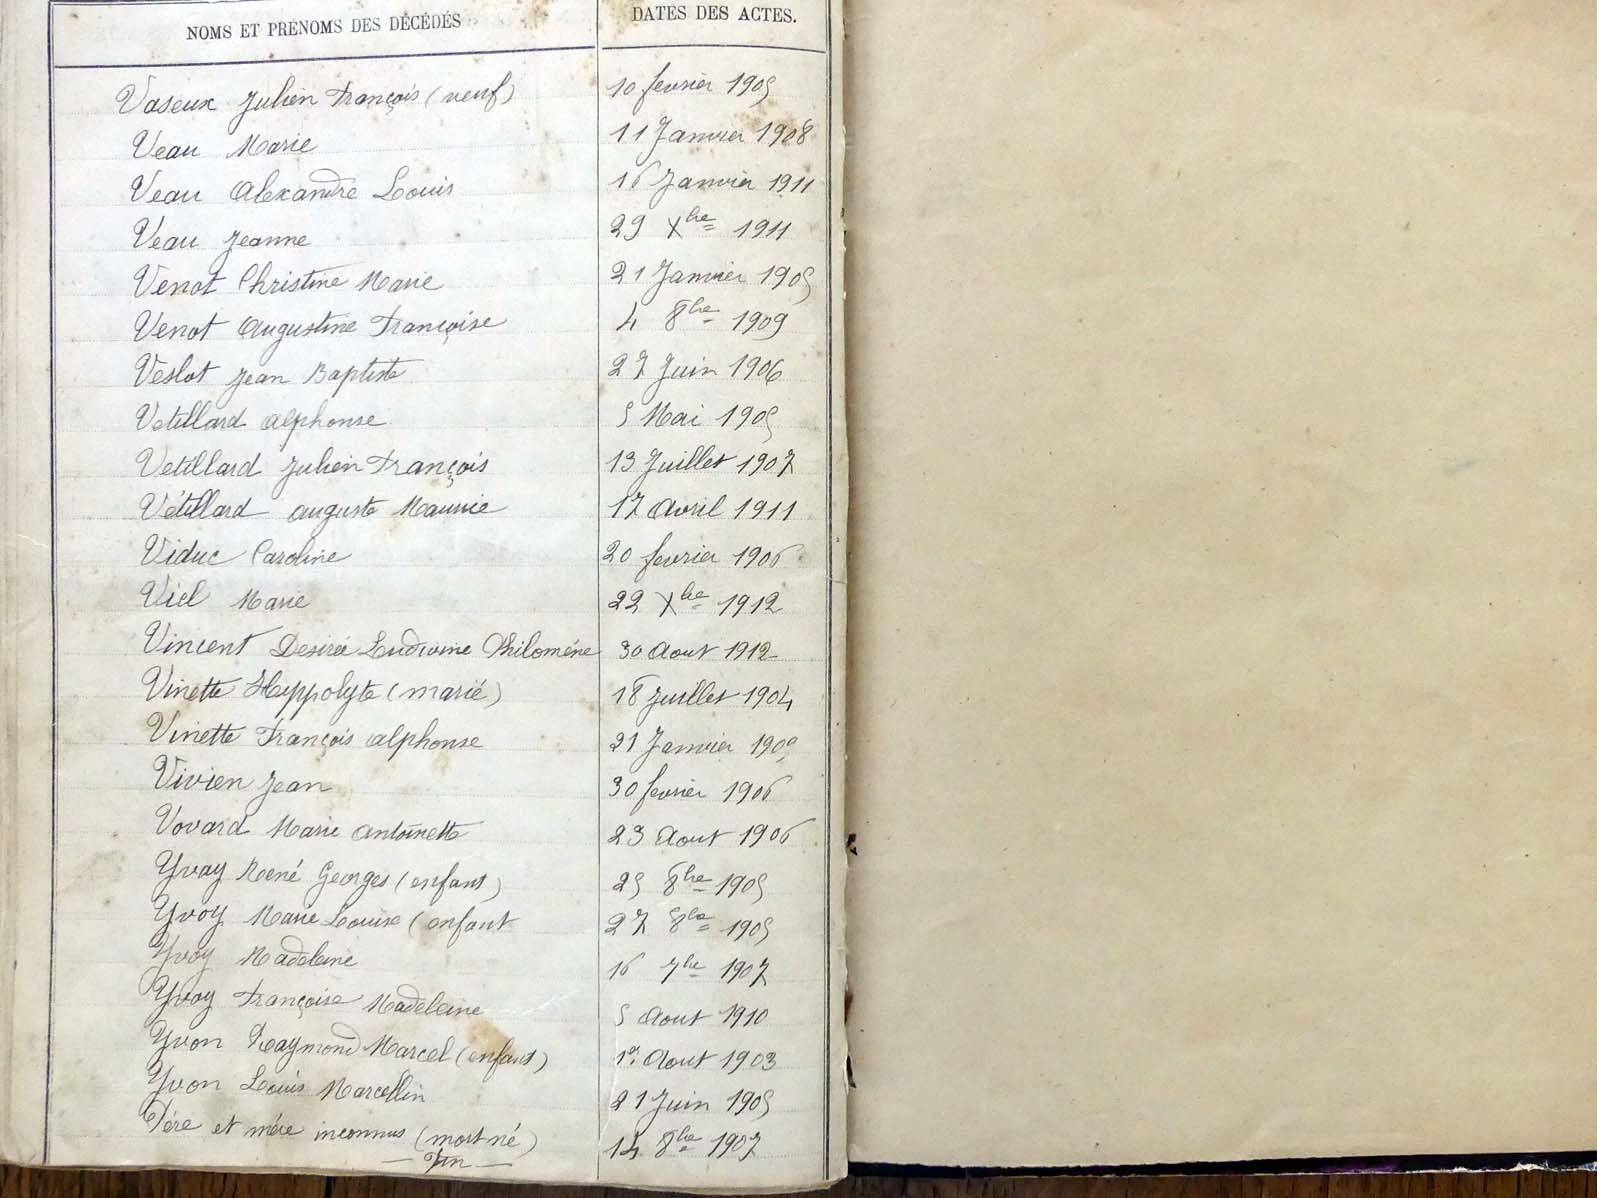 NOMS ET PRÉNOMS DES DÉCÉDÉS DATES DES ACTES.
Vaseux Julien François (veuf) 10 fevrier 1905
Veau Marie 11 Janvier 1908
Veau Alexandre Louis 16 Janvier 1911
Veau Jeanne 29 Xbre 1911
Venot Christine Marie 21 Janvier 1905
Venot Augustine Françoise 4 8bre 1909
Veslot Jean Baptiste 27 Juin 1906
Vetillard Alphonse 5 Mai 1905
Vetillard Julien François 13 Juillet 1907
Vétillard Auguste Maurice 17 Avril 1911
Viduc Caroline 20 fevrier 1906
Viel Marie 22 Xbre 1912
Vincent Desirée Ludivine Philomène 30 Aout 1912
Vinette Hyppolyte (marié) 18 Juillet 1904
Vinette François Alphonse 21 Janvier
Vivien Jean 30 fevrier 1906
Vovard Marie Antoinette 23 Aout 1906
Yvoy René Georges (enfant) 25 8bre 1905
Yvoy Marie Louise (enfant 27 8bre 1905
Yvoy Madeleine 16 7bre 1907
Yvoy Françoise Madeleine 5 Aout 1910
Yvon Raymond Marcel (enfant) 1er Aout 1903
Yvon Louis Marcellin 21 Juin 1905
Père et mère inconnus (mort né) 14 8bre 1907
— Fin —